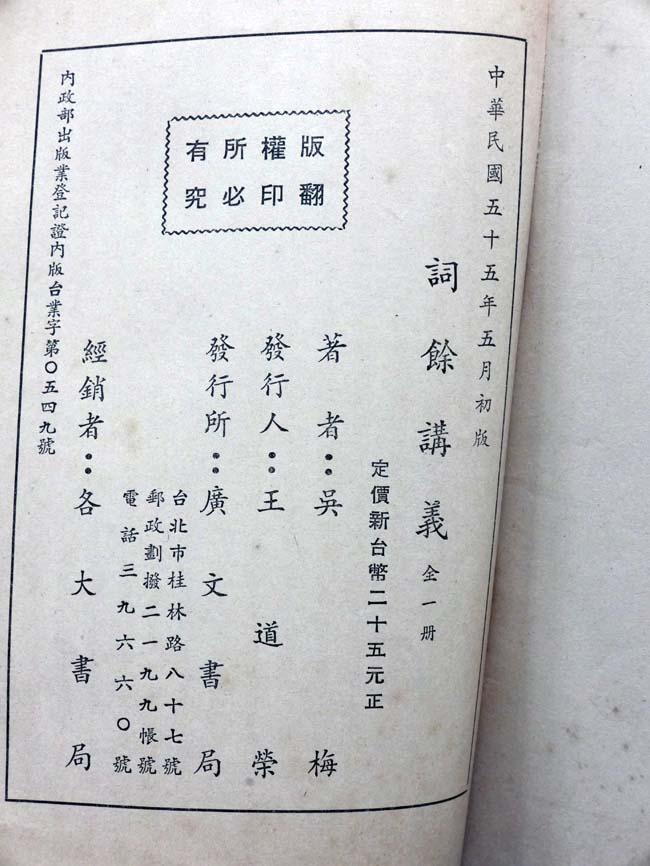 中華民國五十五年五月初版
詞餘講義 全一册
定價新台幣二十五元正
著者：吳梅
發行人：王道榮
發行所：廣文書局
台北市桂林路八十七號
郵政劃撥二一九九帳號
電話三九六六〇號
經銷者：各大書局
版權所有
翻印必究
內政部出版業登記證內版台業字第〇五四九號